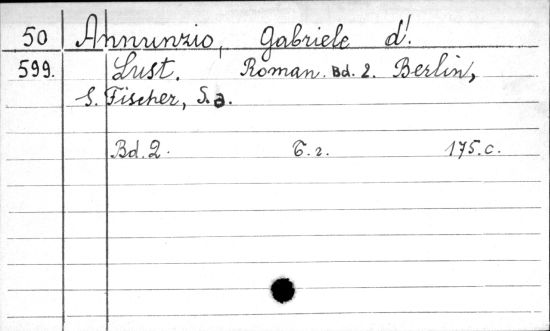 50 Annunzio, Gabriele d'.
599. Lust. Roman. Bd. 2. Berlin,
S. Fischer, S.a.
Bd. 2. T. 2. 175. c.